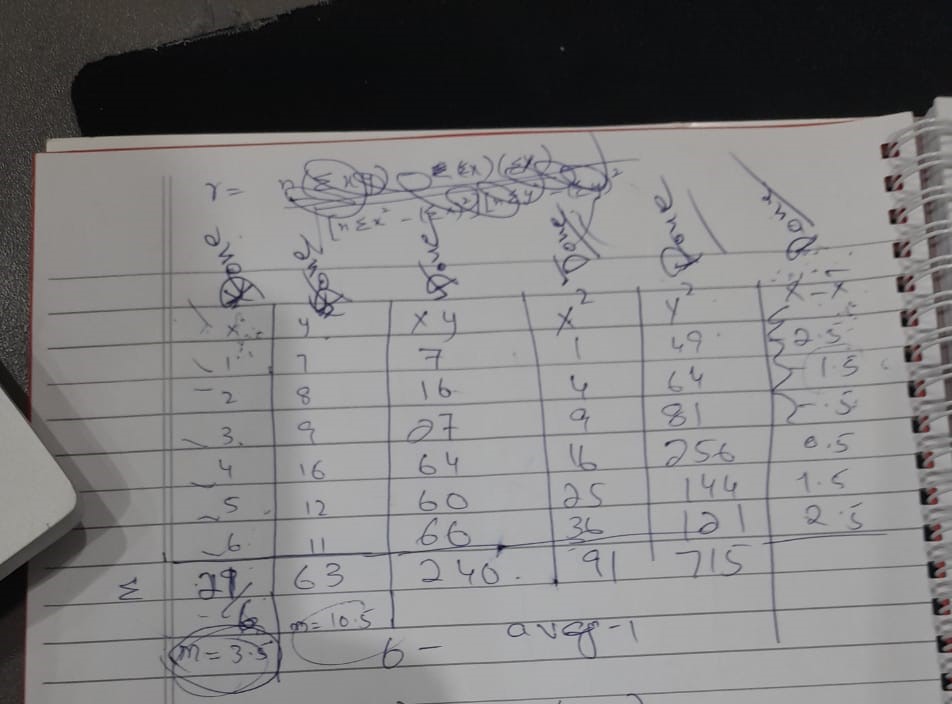 r = n(Σxy) - (Σx)(Σy)
[nΣx² - (Σx)²][nΣy
Done Done Done Done Done Done
x y xy x² y² x - x̄
1 7 7 1 49 2.5
2 8 16 4 64 1.5
3. 9 27 9 81 -.5
4 16 64 16 256 0.5
5 12 60 25 144 1.5
6 11 66 36 121 2.5
Σ 21/ 63 240. 91 715
6 m = 10.5
m = 3.5 6 - avg-1